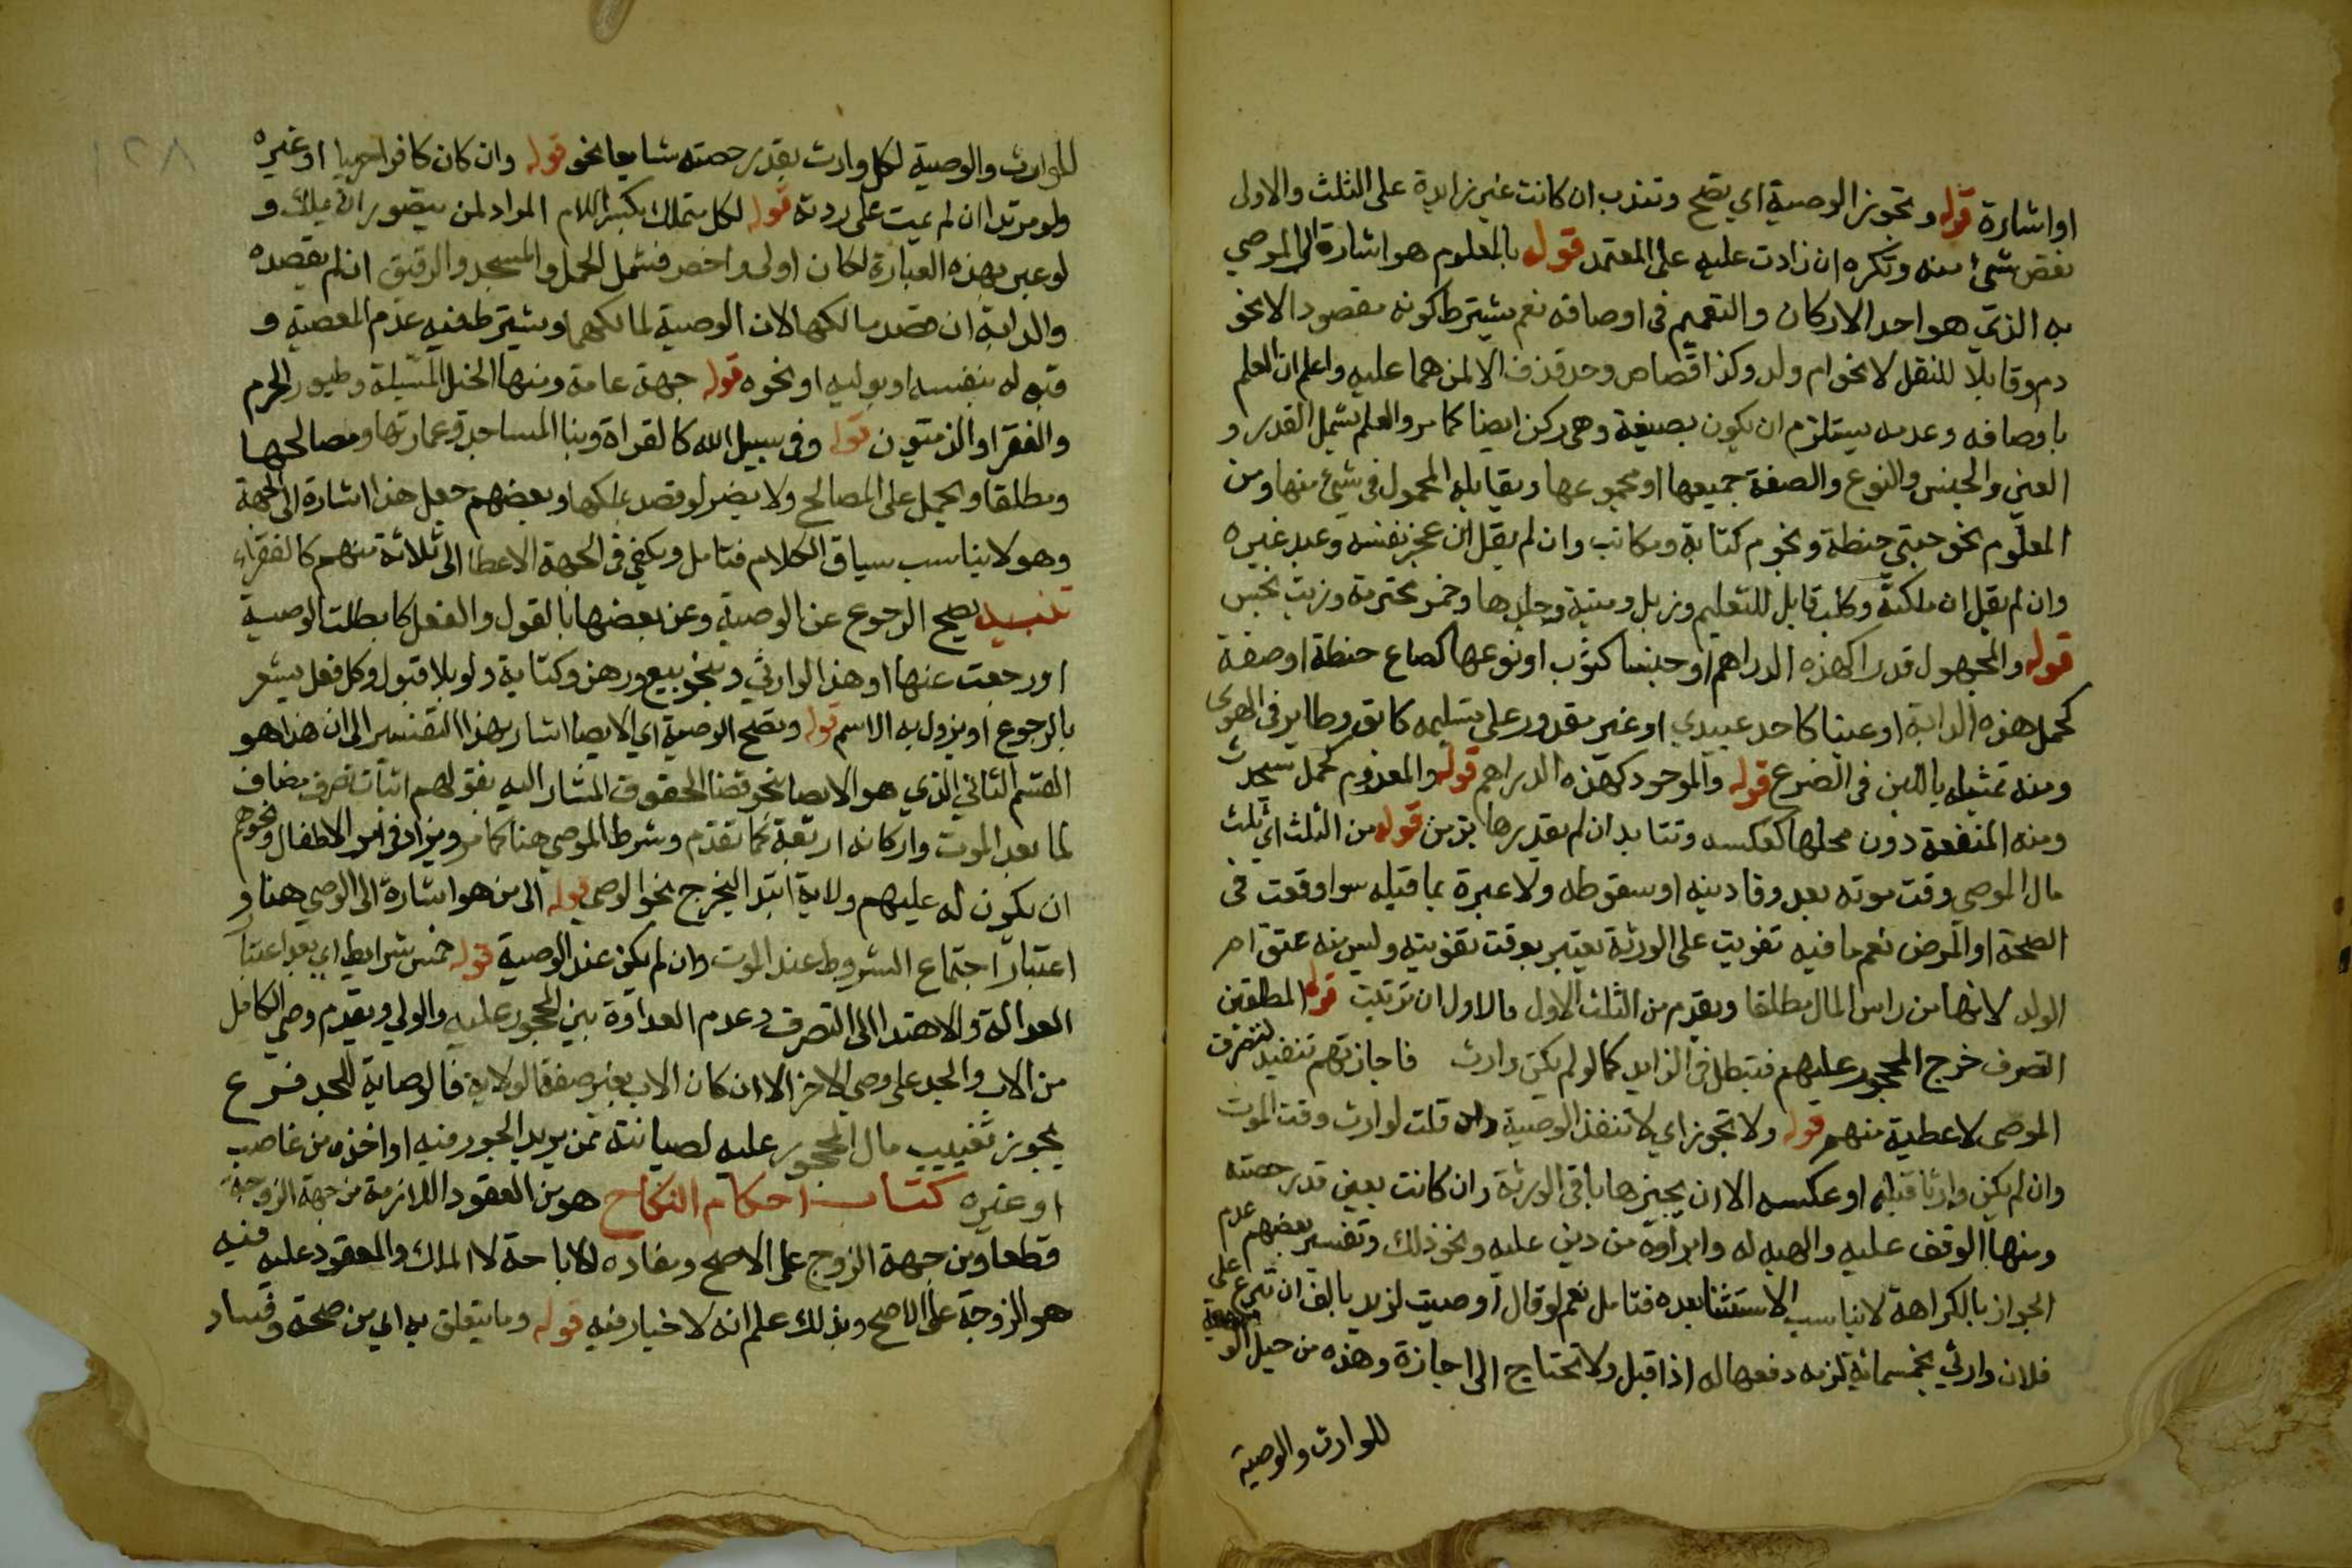 او اشارة قوله وتجوز الوصية اي تصح وتندب ان كانت غير زايدة على الثلث والاولى
نقص شيء منه وتكره ان زادت عليه على المعتمد قوله بالمعلوم هو اشارة الى الموصي
به الذي هو احد الاركان والتعميم في اوصافه نعم يشترط كونه مقصودا لا نحو
دم وقابلا للنقل لا نحو ام ولد وكذا قصاص وحد قذف الا لمن هما عليه واعلم ان العلم
باوصافه وعدمه يستلزم ان يكون بصيغة وهي ركن ايضا كما مر والعلم يشمل القدر و
العين والجنس والنوع والصفة جميعها او مجموعها ويقابله المجهول في شيء منها ومن
المعلوم نحو حبتي حنطة ونجوم كتابة ومكاتب وان لم يقل ان عجز نفسه وعبد غيره
وان لم يقل ان ملكته وكلب قابل للتعليم وزبل وميتة وجلدها وخمر محترمة وزيت نجس
قوله والمجهول قدرا كهذه الدراهم او جنسا كثوب او نوعها كصاع حنطة او صفة
كحمل هذه الدابة او عينا كاحد عبيدي او غير مقدور على تسليمه كابق وطاير في الهوى
ومنه تمثيله باللبن في الضرع قوله والموجود كهذه الدراهم قوله والمعدوم كحمل سيحدث
ومنه المنفعة دون محلها كعكسه وتتابد ان لم يقدرها بزمن قوله من الثلث اي ثلث
مال الموصي وقت موته بعد وفا دينه او سقوطه ولا عبرة بما قبله سوا وقعت في
الصحة او المرض نعم ما فيه تفويت على الورثة يعتبر بوقت تفويته وليس منه عتق ام
الولد لانها من راس المال مطلقا ويقدم من الثلث الاول فالاول ان ترتبت قوله المطلقين
التصرف خرج المحجور عليهم فتبطل في الزايد كما لو لم يكن وارث فاجازتهم تنفيذ لتصرف
الموصي لا عطية منهم قوله ولا تجوز اي لا تنفذ الوصية وان قلت لوارث وقت الموت
وان لم يكن وارثا قبله او عكسه الا ان يجيزها باقي الورثة وان كانت بعين قدر حصته
ومنها الوقف عليه والهبه له وابراوه من دين عليه ونحو ذلك وتفسير بعضهم عدم
الجواز بالكراهة لا يناسب الاستثنا بعده فتامل نعم لو قال اوصيت لزيد بالف ان تبرع على
فلان وارثي بخمسمائة لزمه دفعها له اذا قبل ولا تحتاج الى اجازة وهذه من حيل الوصية
للوارث والوصية
للوارث والوصية لكل وارث بقدر حصته شايعا نحو قوله وان كان كافرا حربيا او غيره
ولو مرتدا ان لم يمت على ردته قوله لكل متملك بكسر اللام المراد لمن يتصور ان يملك و
لو عبر بهذه العبارة لكان اولى واخصر فشمل الحمل والمسجد والرقيق ان لم يقصده
والدابة ان قصد مالكها لان الوصية لمالكهما ويشترط فيه عدم المعصية و
قبوله بنفسه او بوليه او نحوه قوله جهة عامة ومنها الخيل المسبلة وطيور الحرم
والفقرا والزمنون قوله وفي سبيل الله كالقراة وبنا المساجد وعمارتها ومصالحها
ومطلقا ويحمل على المصالح ولا يضر لو قصد تملكها وبعضهم جعل هذا اشارة الى الجهة
وهو لا يناسب سياق الكلام فتامل ويكفي في الجهة الاعطا الى ثلاثة منهم كالفقراء
تنبيه يصح الرجوع عن الوصية وعن بعضها بالقول والفعل كابطلت الوصية
او رجعت عنها او هذا لوارثي وبنحو بيع ورهن وكتابة ولو بلا قبول وكل فعل يشعر
بالرجوع او يزول به الاسم قوله وتصح الوصية اي الايصا اشار بهذا التفسير الى ان هذا هو
القسم الثاني الذي هو الايصا بنحو قضا الحقوق المشار اليه بقولهم اثبات تصرف مضاف
لما بعد الموت واركانه اربعة كما تقدم وشرط الموصي هنا كما مر ويزاد في امر الاطفال ونحوهم
ان يكون له عليهم ولاية ابتدا ليخرج نحو الوصي قوله الى من هو اشارة الى الوصي هنا و
اعتبار اجتماع الشروط عند الموت وان لم يكن عند الوصية قوله خمس شرايط اي بعد اعتبار
العدالة والاهتدا الى التصرف وعدم العداوة بين المحجور عليه والولي ويقدم وصي الكامل
من الاب والجد على وصي الاخر الا ان كان الاب بغير صفة الولاية فالوصاية للجد فرع
يجوز تغييب مال المحجور عليه لصيانته ممن يريد الجور فيه او اخذه من غاصب
او غيره كتاب احكام النكاح هو من العقود اللازمة من جهة الزوجة
قطعا ومن جهة الزوج على الاصح ومفاده الاباحة لا الملك والمعقود عليه فيه
هو الزوجة على الاصح وبذلك علم انه لا خيار فيه قوله وما يتعلق به اي من صحة وفساد